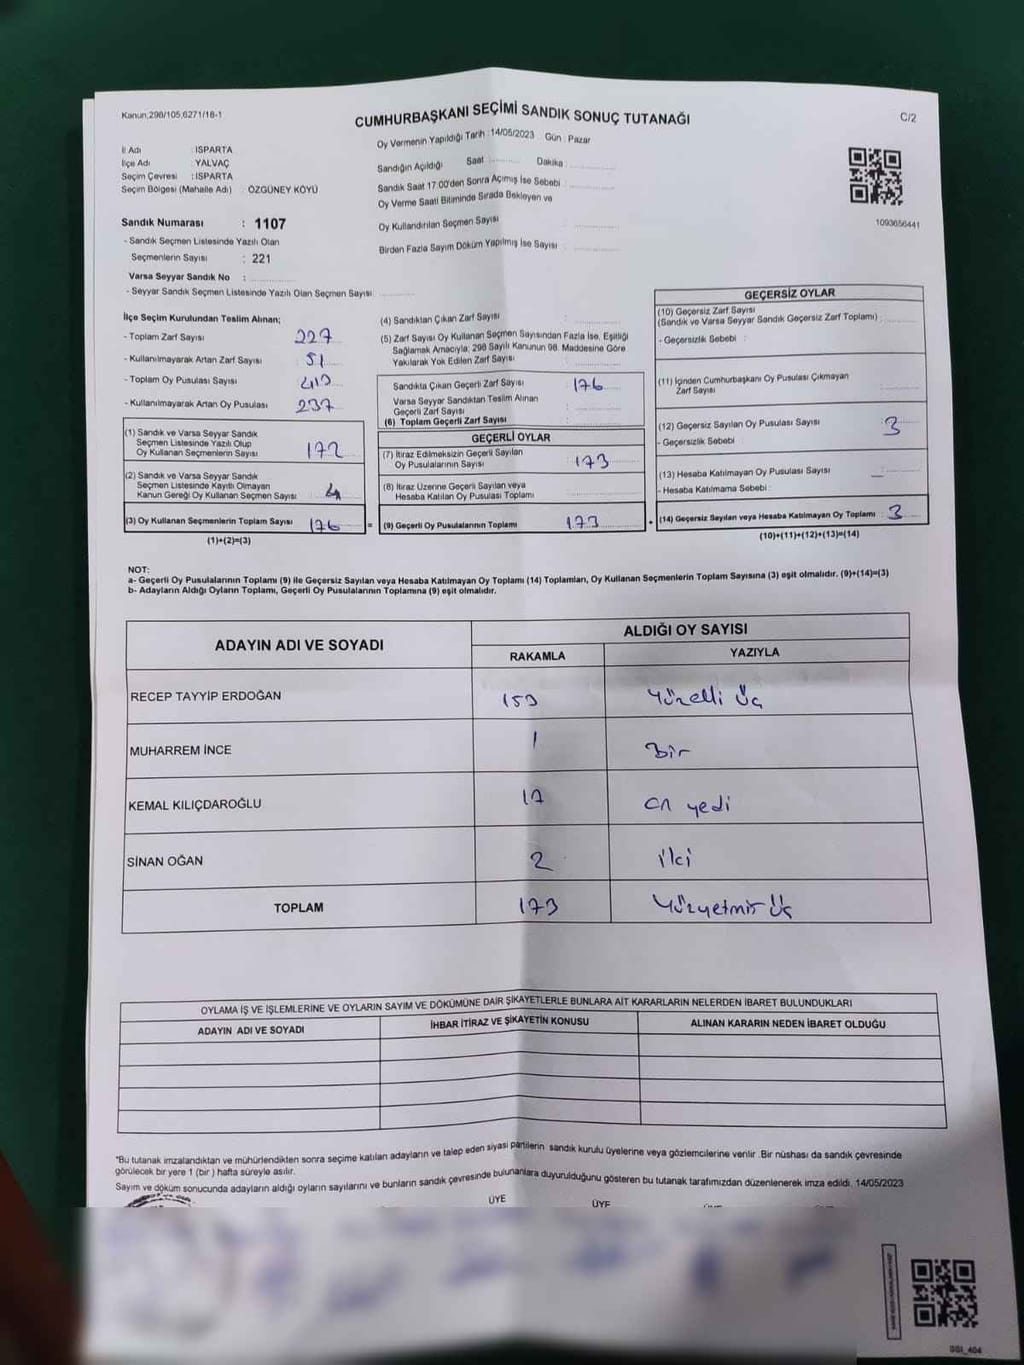 Kanun,298/105,6271/18-1
CUMHURBAŞKANI SEÇİMİ SANDIK SONUÇ TUTANAĞI
C/2
Oy Vermenin Yapıldığı Tarih :14/05/2023 Gün : Pazar
İl Adı : ISPARTA
İlçe Adı : YALVAÇ
Seçim Çevresi : ISPARTA
Seçim Bölgesi (Mahalle Adı) : ÖZGÜNEY KÖYÜ
Sandığın Açıldığı Saat .......... Dakika ..........
Sandık Saat 17.00'den Sonra Açımış İse Sebebi :
Oy Verme Saati Bitiminde Sırada Bekleyen ve
Oy Kullandırılan Seçmen Sayısı :
Birden Fazla Sayım Döküm Yapılmış İse Sayısı :
1093656441
Sandık Numarası : 1107
- Sandık Seçmen Listesinde Yazılı Olan
Seçmenlerin Sayısı : 221
Varsa Seyyar Sandık No :
- Seyyar Sandık Seçmen Listesinde Yazılı Olan Seçmen Sayısı :
İlçe Seçim Kurulundan Teslim Alınan;
- Toplam Zarf Sayısı : 227
- Kullanılmayarak Artan Zarf Sayısı : 51
- Toplam Oy Pusulası Sayısı : 413
- Kullanılmayarak Artan Oy Pusulası : 237
(1) Sandık ve Varsa Seyyar Sandık
Seçmen Listesinde Yazılı Olup
Oy Kullanan Seçmenlerin Sayısı : 172
(2) Sandık ve Varsa Seyyar Sandık
Seçmen Listesinde Kayıtlı Olmayan
Kanun Gereği Oy Kullanan Seçmen Sayısı : 4
(3) Oy Kullanan Seçmenlerin Toplam Sayısı : 176
(1)+(2)=(3)
(4) Sandıktan Çıkan Zarf Sayısı :
(5) Zarf Sayısı Oy Kullanan Seçmen Sayısından Fazla İse, Eşitliği
Sağlamak Amacıyla; 298 Sayılı Kanunun 98. Maddesine Göre
Yakılarak Yok Edilen Zarf Sayısı :
Sandıkla Çıkan Geçerli Zarf Sayısı : 176
Varsa Seyyar Sandıktan Teslim Alınan
Geçerli Zarf Sayısı :
(6) Toplam Geçerli Zarf Sayısı :
GEÇERLİ OYLAR
(7) İtiraz Edilmeksizin Geçerli Sayılan
Oy Pusulalarının Sayısı : 173
(8) İtiraz Üzerine Geçerli Sayılan veya
Hesaba Katılan Oy Pusulası Toplamı :
= (9) Geçerli Oy Pusulalarının Toplamı : 173
GEÇERSİZ OYLAR
(10) Geçersiz Zarf Sayısı
(Sandık ve Varsa Seyyar Sandık Geçersiz Zarf Toplamı) :
- Geçersizlik Sebebi :
(11) İçinden Cumhurbaşkanı Oy Pusulası Çıkmayan
Zarf Sayısı :
(12) Geçersiz Sayılan Oy Pusulası Sayısı : 3
- Geçersizlik Sebebi :
(13) Hesaba Katılmayan Oy Pusulası Sayısı :
- Hesaba Katılmama Sebebi :
+ (14) Geçersiz Sayılan veya Hesaba Katılmayan Oy Toplamı : 3
(10)+(11)+(12)+(13)=(14)
NOT:
a- Geçerli Oy Pusulalarının Toplamı (9) ile Geçersiz Sayılan veya Hesaba Katılmayan Oy Toplamı (14) Toplamları, Oy Kullanan Seçmenlerin Toplam Sayısına (3) eşit olmalıdır. (9)+(14)=(3)
b- Adayların Aldığı Oyların Toplamı, Geçerli Oy Pusulalarının Toplamına (9) eşit olmalıdır.
ADAYIN ADI VE SOYADI ALDIĞI OY SAYISI
RAKAMLA YAZIYLA
RECEP TAYYİP ERDOĞAN 153 Yüzelli Üç
MUHARREM İNCE 1 Bir
KEMAL KILIÇDAROĞLU 17 on yedi
SİNAN OĞAN 2 iki
TOPLAM 173 Yüzyetmiş Üç
OYLAMA İŞ VE İŞLEMLERİNE VE OYLARIN SAYIM VE DÖKÜMÜNE DAİR ŞİKAYETLERLE BUNLARA AİT KARARLARIN NELERDEN İBARET BULUNDUKLARI
ADAYIN ADI VE SOYADI İHBAR İTİRAZ VE ŞİKAYETİN KONUSU ALINAN KARARIN NEDEN İBARET OLDUĞU
*Bu tutanak imzalandıktan ve mühürlendikten sonra seçime katılan adayların ve talep eden siyasi partilerin sandık kurulu üyelerine veya gözlemcilerine verilir .Bir nüshası da sandık çevresinde
görülecek bir yere 1 (bir ) hafta süreyle asılır.
Sayım ve döküm sonucunda adayların aldığı oyların sayılarını ve bunların sandık çevresinde bulunanlara duyurulduğunu gösteren bu tutanak tarafımızdan düzenlenerek imza edildi. 14/05/2023
ÜYE ÜYE
SSI_404